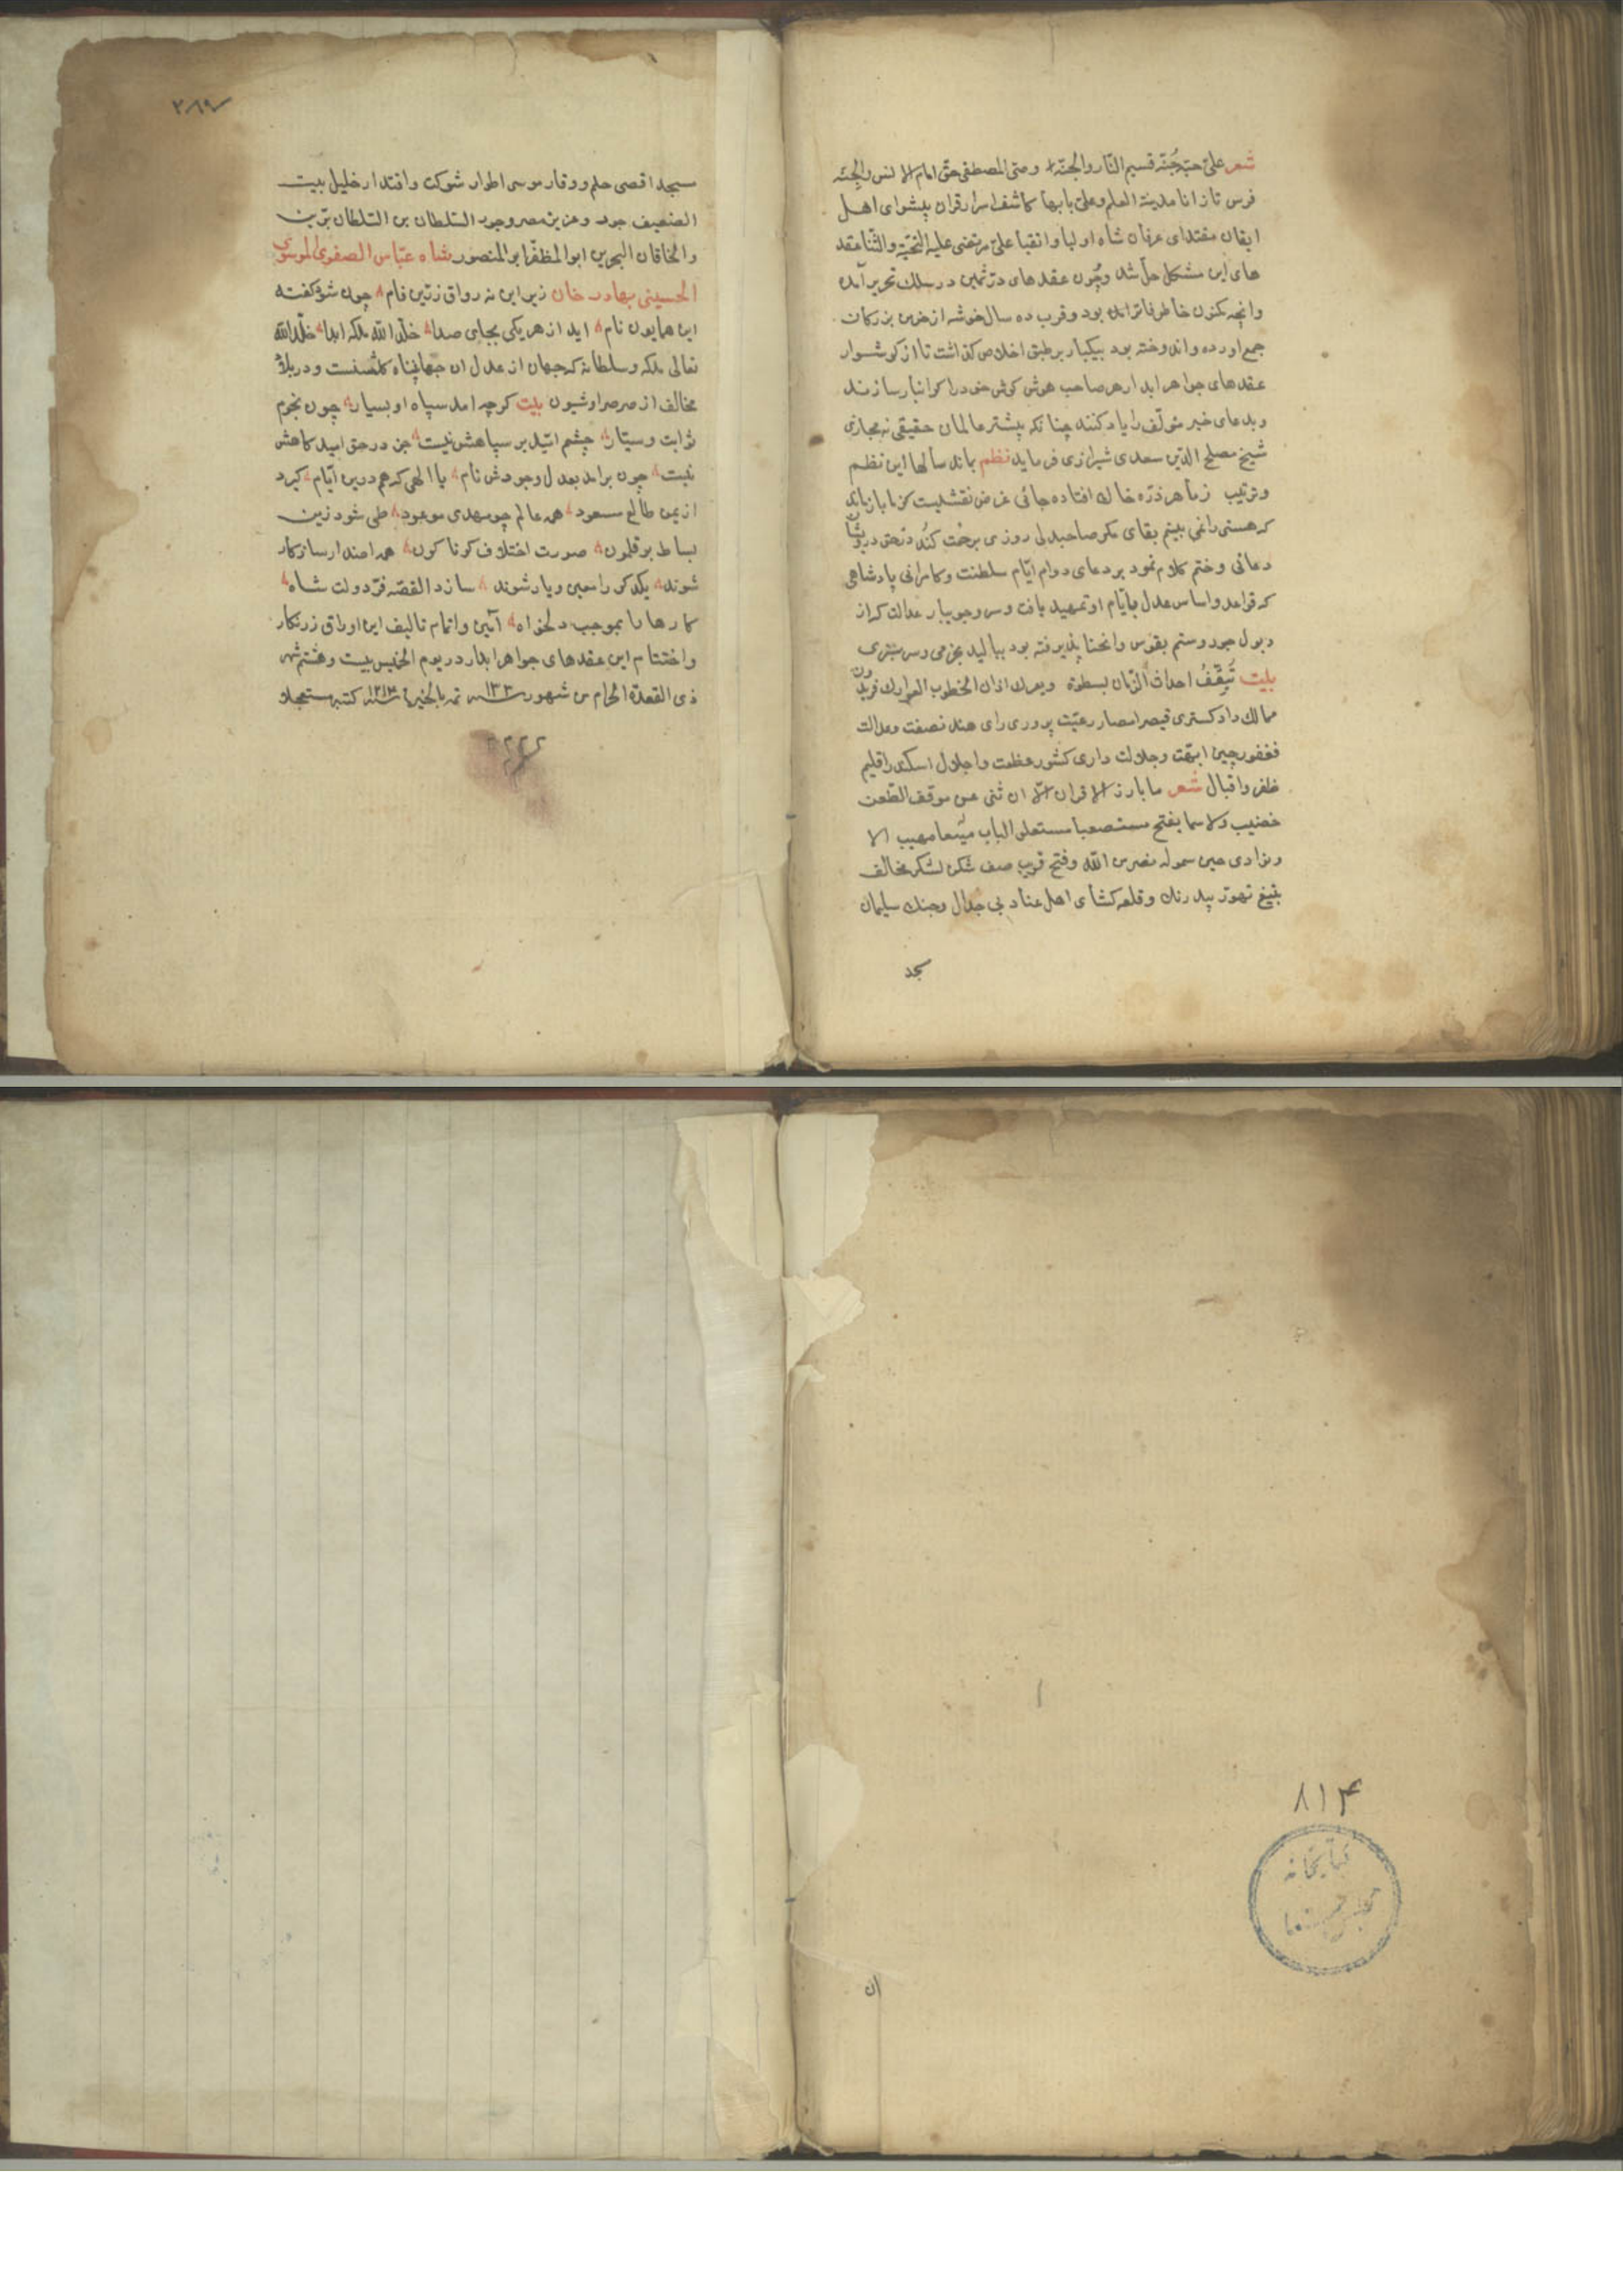 شعر علیّ حبّه جُنّه قسیم النّار والجنّة وصیّ المصطفی حقّا امام الانس والجنّه
فرس تاز انا مدینة العلم وعلیّ بابها کاشف اسرار قران پیشوای اهل
ایقان مقتدای عرفان شاه اولیا و اتقیا علیّ مرتضی علیه التحیّة والثّنا عقد
های این مشکل حلّ شد وچُون عقدهای درّ ثمین در سلک تحریر آمد
وانچه مکنون خاطر فاتر امد بود وقرب ده سال خوشه از خرمن بزرکان
جمع اورده واندوخته بود بیکبار بر طبق اخلاص کذاشت تا از کوشوار
عقدهای جواهر ابدار هر صاحب هوش کوش خود را کرانبار سازند
وبدعای خیر مؤلّف را یاد کنند چنانکه پیشتر عالمان حقیقی نه مجازی
شیخ مصلح الدّین سعدی شیرازی فرماید نظم بماند سالها این نظم
وترتیب زما هر ذرّه خاک افتاده جائی غرض نقشیست کز ما باز ماند
که هستی را نمی بینم بقای مکر صاحبدلی روزی برحمت کند در حق درویشان
دعائی وختم کلام نمود بر دعای دوام ایّام سلطنت وکامرانی پادشاهی
که قواعد واساس عدل بایّام او تمهید یافت وسر وجویبار عدالت که از
دبول جور وستم بقوس وانحنا پذیرفته بود ببالید بخرمی وسرسبزی
بیت تَیَقّفُ احداث الزّمان لسطوة ویعرک اذان الخطوب العوارک فریدون
ممالک داد کستری قیصر امصار رعیّت پروری رای هند نصفت وعدالت
فغفور چین ابهّت وجلالت دارای کشور عظمت واجلال اسکندر اقلیم
ظفر واقبال شعر ما بارز الاقران الّا ان ثنی عن موقف الطّعن
خضیب ولا سما بفتح مستصعبا مستعلی الباب میّعا مهیب الا
ونادی حین سموله نصر من الله وفتح قریب صف شکن لشکر مخالف
بتیغ تهوّر بیدرنک وقلعه کشای اهل عناد بی جدال وجنک سلیمان
سجد
۲۸۹
سجد اقصی حلم ووقار موسی اطوار شوکت واقتدار خلیل بیت
الضیف جود وعزیز مصر وجود السّلطان بن السّلطان برّین
والخاقان البحرین ابوالمظفّر ابوالمنصور شاه عبّاس الصفوی الموسوی
الحسینی بهادر خان زیر این نه رواق زرّین فام چون شود کفته
این همایون نام اید از هر یکی بجای صدا خلّد الله ملکه ابدا خلّد الله
تعالی ملکه وسلطانه که جهان از عدل ان جهانپناه کلشنست ودر بلاد
مخالف از صرصر او شیون بیت کرچه امد سپاه او بسیار چون نجوم
ثوابت وسیّار چشم امّید بر سپاهش نیست جز در حق امید کاهش
نیست چون برامد بعدل وجودش نام یا الهی که هم درین ایّام کیرد
از یمن طالع مسعود همه عالم چو مهدی موعود طی شود زین
بساط بوقلمون صورت اختلاف کوناکون همه اضداد سازکار
شوند یکدکر را معین ویار شوند سازد القصّه فرّ دولت شاه
کارها را بموجب دلخواه آئین واتمام تالیف این اوراق زرنکار
واختتام این عقدهای جواهر ابدار در یوم الخمیس بیست وهشتم شهر
ذی القعدة الحرام من شهور سنه تمّ بالخیر کتبه مستعجلا
۸۱۴
کتابخانه
مجلس
ان